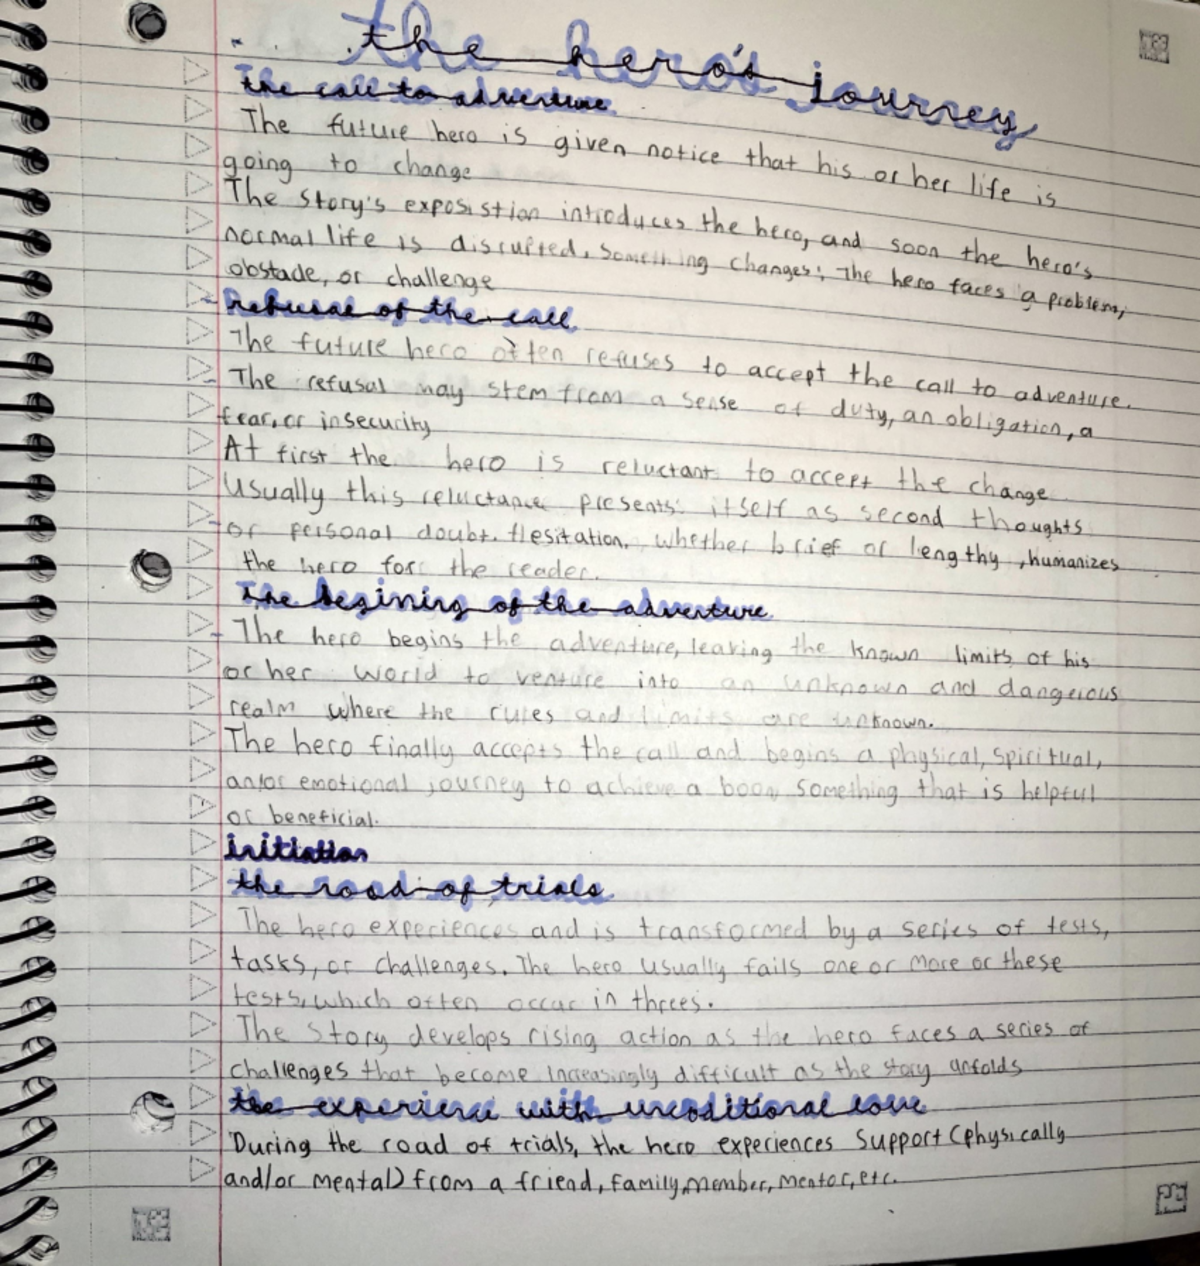 the hero's journey
the call to adventure
The future hero is given notice that his or her life is
going to change
The Story's exposistion introduces the hero, and soon the hero's
normal life is disrupted, something changes; the hero faces a problem,
obstacle, or challenge
refusal of the call
The future hero often refuses to accept the call to adventure.
The refusal may stem from a sense of duty, an obligation, a
fear, or insecurity
At first the hero is reluctant to accept the change
Usually this reluctance presents itself as second thoughts
or personal doubt. Hesitation, whether brief or lengthy, humanizes
the hero for the reader.
the begining of the adventure
The hero begins the adventure, leaving the known limits of his
or her world to venture into an unknown and dangerous
realm where the rules and limits are unknown.
The hero finally accepts the call and begins a physical, spiritual,
an/or emotional journey to achieve a boon, something that is helpful
or beneficial.
initiation
the road of trials
The hero experiences and is transformed by a series of tests,
tasks, or challenges. The hero usually fails one or more or these
tests, which often occur in threes.
The Story develops rising action as the hero faces a series of
challenges that become increasingly difficult as the story unfolds
the experience with uncoditional love
During the road of trials, the hero experiences support (physically
and/or mental) from a friend, family, member, mentor, etc.